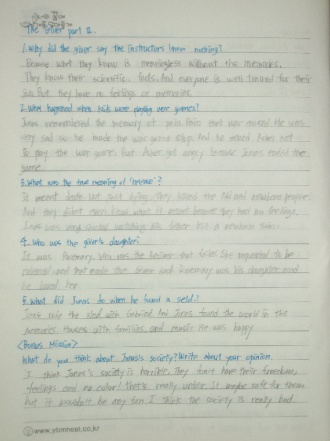 The Giver part 2.
1. Why did the giver say the Instructors know nothing?
Because what they know is meaningless without the memories.
They know their scientific facts. And everyone is well trained for their
job. But they have no feelings or memories.
2. What happened when kids were playing war games?
Jonas remembered the memory of pain from that war made. He was
very sad so he made the war game stop. And he asked Asher not
to play the war games but Asher got angry because Jonas ended the
game.
3. What was the true meaning of 'release'?
It meant death but still they killed the Old and newborn people.
And they didn't even know what it meant because they had no feelings.
Jonas was very shocked watching his father kill a newborn baby.
4. Who was the giver's daughter?
It was Rosemary. Who was the Receiver that failed. She requested to be
released and that made the giver sad. Rosemary was his daughter and
he loved her.
5. What did Jonas do when he found a sled?
Jonas rode the sled with Gabriel. And Jonas found the world in the
memories. Houses with families, and music. He was happy
<Bonus Mission>
What do you think about Jonas's society? Write about your opinion.
I think Jonas's society is horrible. They don't have their freedom,
feelings and no color! that's really unfair. It maybe safe for them
but it wouldn't be any fun. I think the society is really bad.
www.ybmnear.co.kr